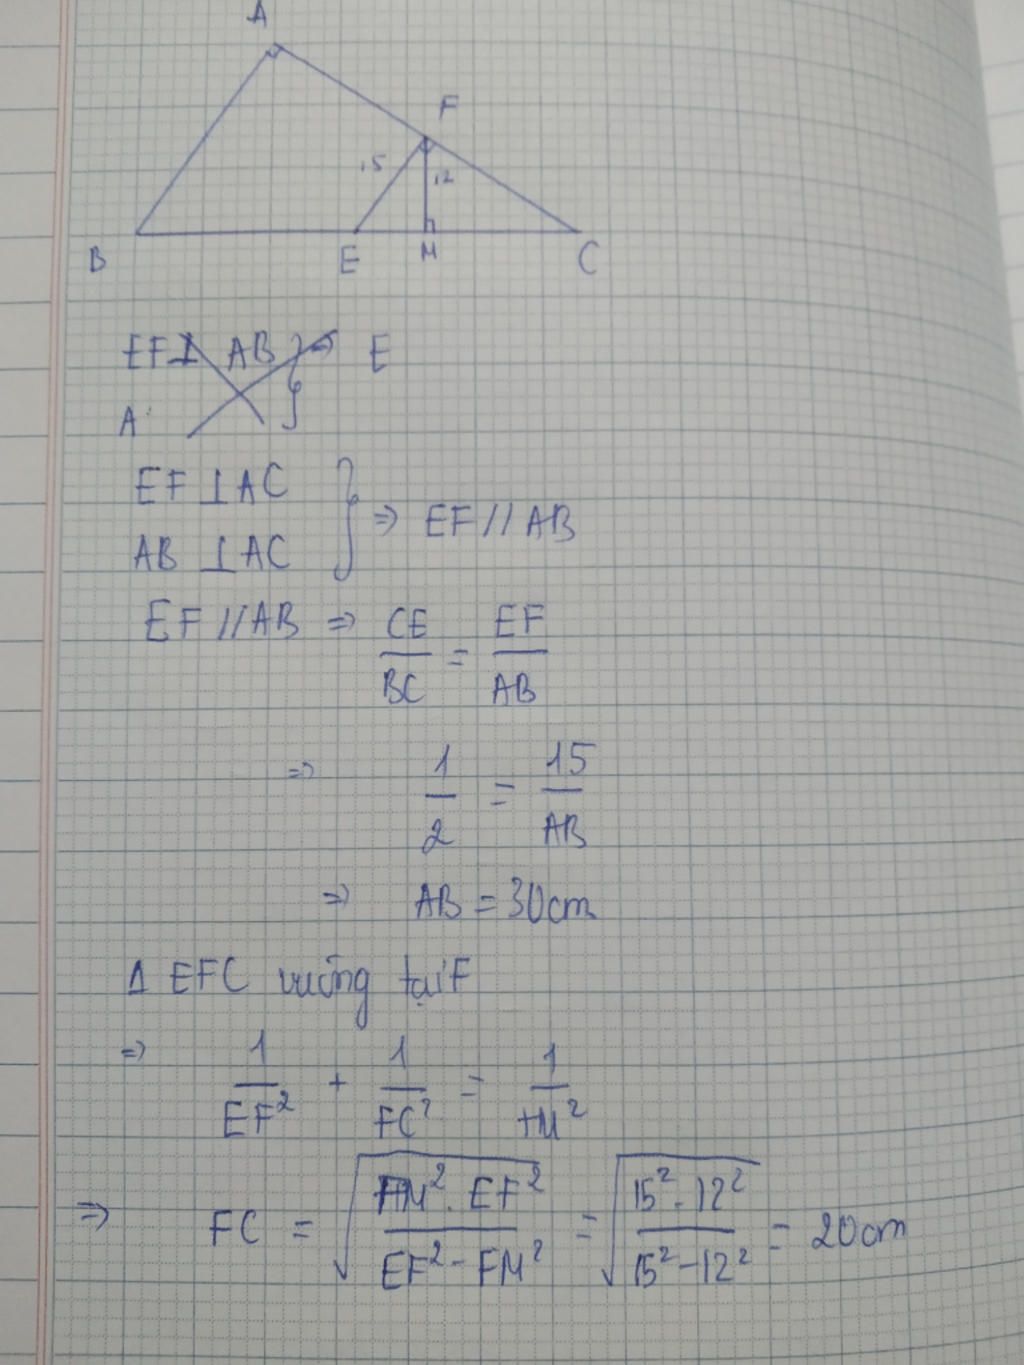 A
F
15
12
B E M C
EF ⊥ AB } => E
A
EF ⊥ AC
AB ⊥ AC } => EF // AB
EF // AB => CE/BC = EF/AB
=> 1/2 = 15/AB
=> AB = 30cm
Δ EFC vuông tại F
=> 1/EF² + 1/FC² = 1/FM²
=> FC = √(FM² . EF² / EF² - FM²) = √(15² . 12² / 15² - 12²) = 20cm